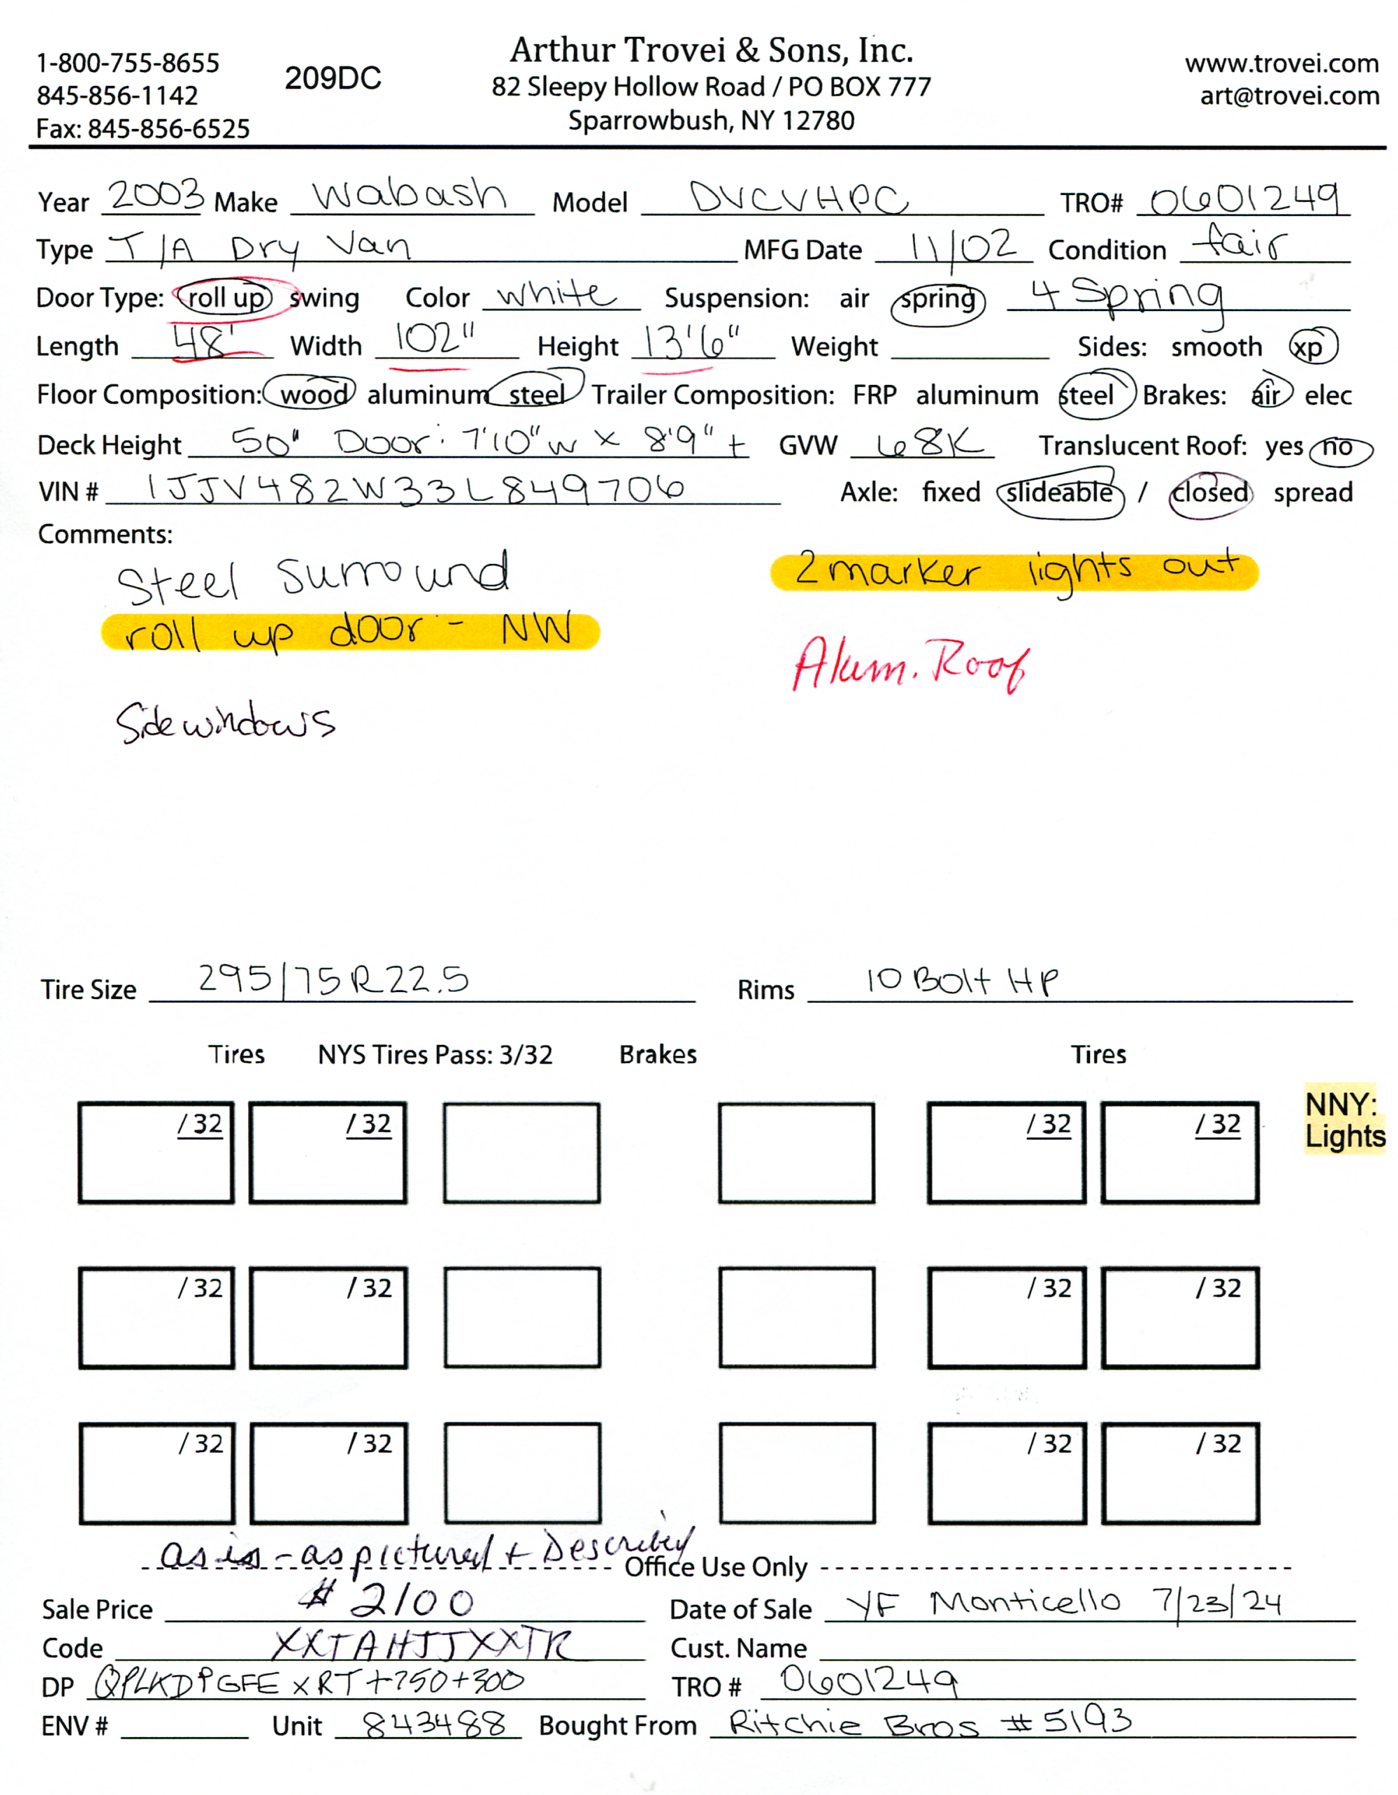 1-800-755-8655
845-856-1142
Fax: 845-856-6525
209DC
Arthur Trovei & Sons, Inc.
82 Sleepy Hollow Road / PO BOX 777
Sparrowbush, NY 12780
www.trovei.com
art@trovei.com
Year 2003 Make Wabash Model DVCVHPC TRO# 0601249
Type T/A Dry Van MFG Date 11/02 Condition fair
Door Type: roll up swing Color white Suspension: air spring 4 Spring
Length 48' Width 102" Height 13'6" Weight Sides: smooth xp
Floor Composition: wood aluminum steel Trailer Composition: FRP aluminum steel Brakes: air elec
Deck Height 50" Door: 7'10"w x 8'9"t GVW 68K Translucent Roof: yes no
VIN # 1JJV482W33L849706 Axle: fixed slideable / closed spread
Comments:
Steel Surround
roll up door - NW
Side windows
2 marker lights out
Alum. Roof
Tire Size 295/75R22.5 Rims 10 Bolt HP
Tires NYS Tires Pass: 3/32 Brakes Tires
/32 /32 /32 /32
NNY:
Lights
/32 /32 /32 /32
/32 /32 /32 /32
as is - as pictured + Described
Office Use Only
Sale Price $2100 Date of Sale YF Monticello 7/23/24
Code XXTAHJJXXTR Cust. Name
DP QPLKDPGFE x RT +750+300 TRO # 0601249
ENV # Unit 843488 Bought From Ritchie Bros #5193